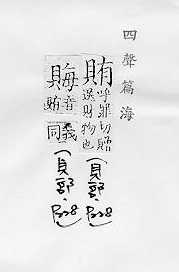 四聲篇海
賄呼罪切贈
送財物也
(貝部.P.28)
音賄
義同
(貝部.P.28)